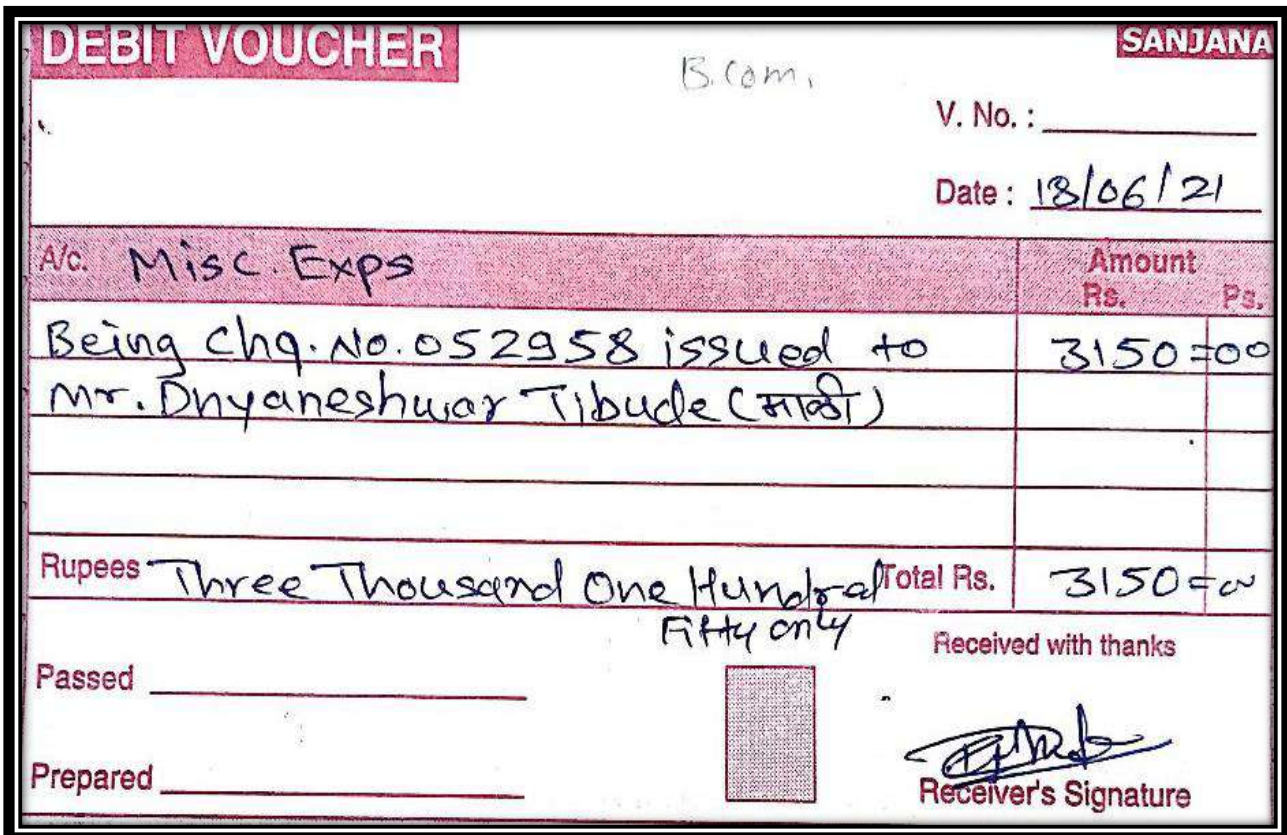 DEBIT VOUCHER
SANJANA
B.Com.
V. No. :
Date : 18/06/21
A/c. Misc. Exps
Amount
Rs. Ps.
Being Chq. No. 052958 issued to 3150=00
Mr. Dnyaneshwar Tibude (माळी)
Rupees Three Thousand One Hundred Total Rs. 3150=00
Fifty only
Received with thanks
Passed
Prepared
Receiver's Signature